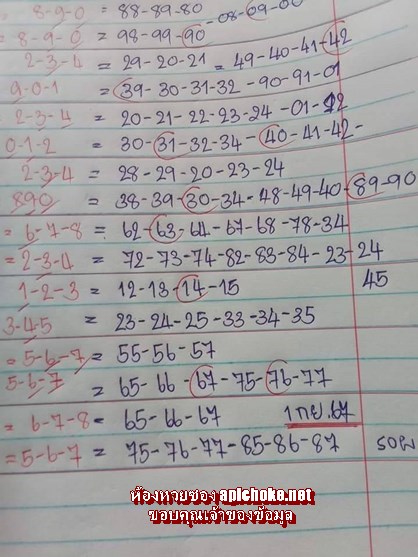 8-9-0 = 88-89-80 -08-09-00
= 8-9-0 = 98-99-90
2-3-4 = 29-20-21 = 49-40-41-42
9-0-1 = 39-30-31-32-90-91-01
2-3-4 = 20-21-22-23-24-01-12
0-1-2 = 30-31-32-34-40-41-42-
2-3-4 = 28-29-20-23-24
890 = 38-39-30-34-48-49-40-89-90
= 6-7-8 = 62-63-64-67-68-78-34
= 2-3-4 = 72-73-74-82-83-84-23-24
1-2-3 = 12-13-14-15 45
3-4-5 = 23-24-25-33-34-35
= 5-6-7 = 55-56-57
5-6-7 = 65-66-67-75-76-77
= 6-7-8 = 65-66-67 1 กย. 67
= 5-6-7 = 75-76-77-85-86-87 รอผ
ห้องหวยซอง apichoke.net
ขอบคุณเจ้าของข้อมูล